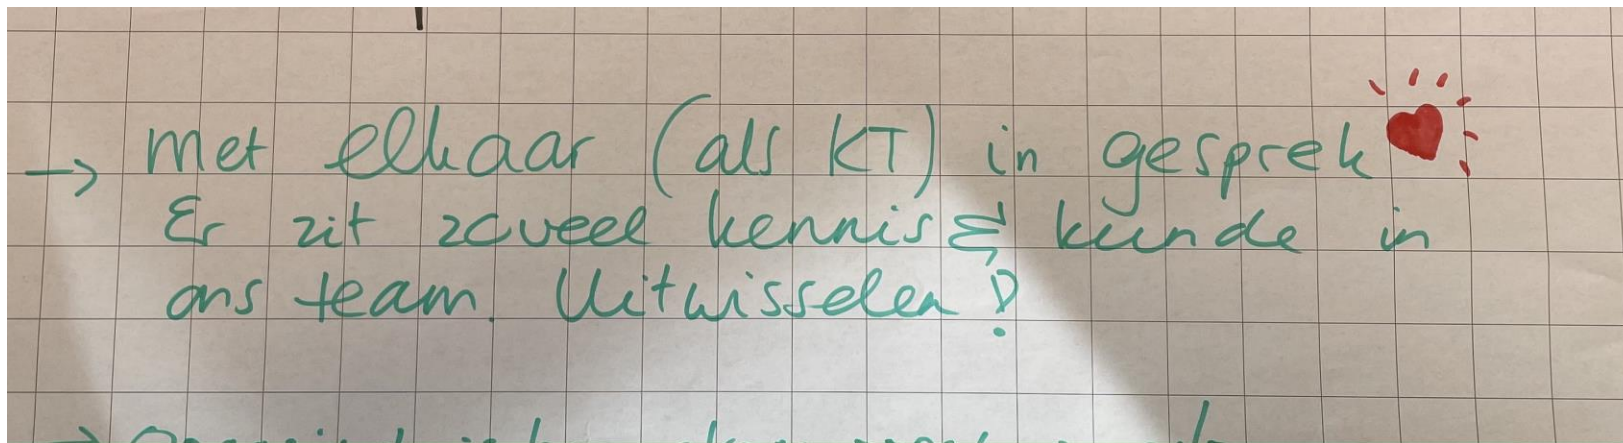 → Met elkaar (als KT) in gesprek ♥
Er zit zoveel kennis & kunde in
ons team. Uitwisselen!